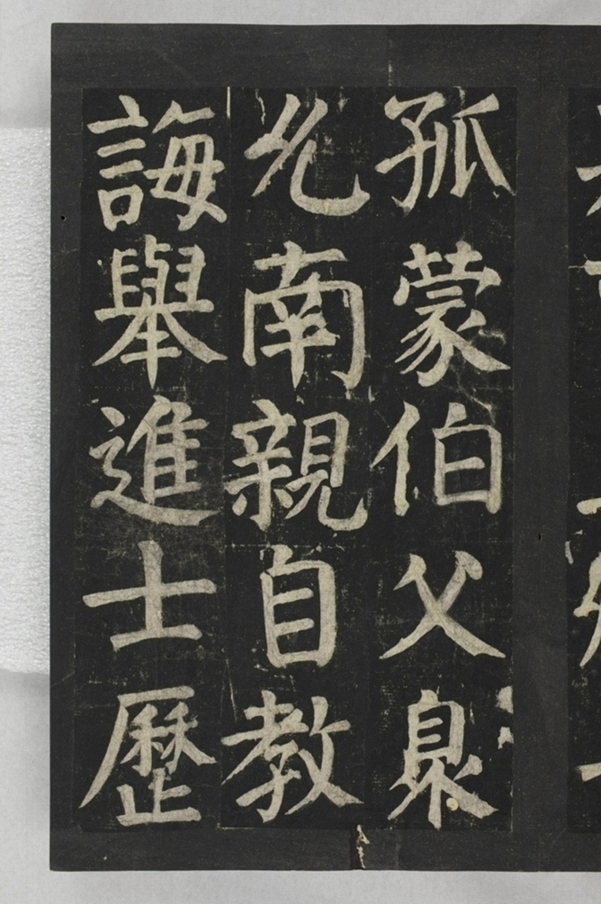 孤蒙伯父臮
允南親自教
誨舉進士歷